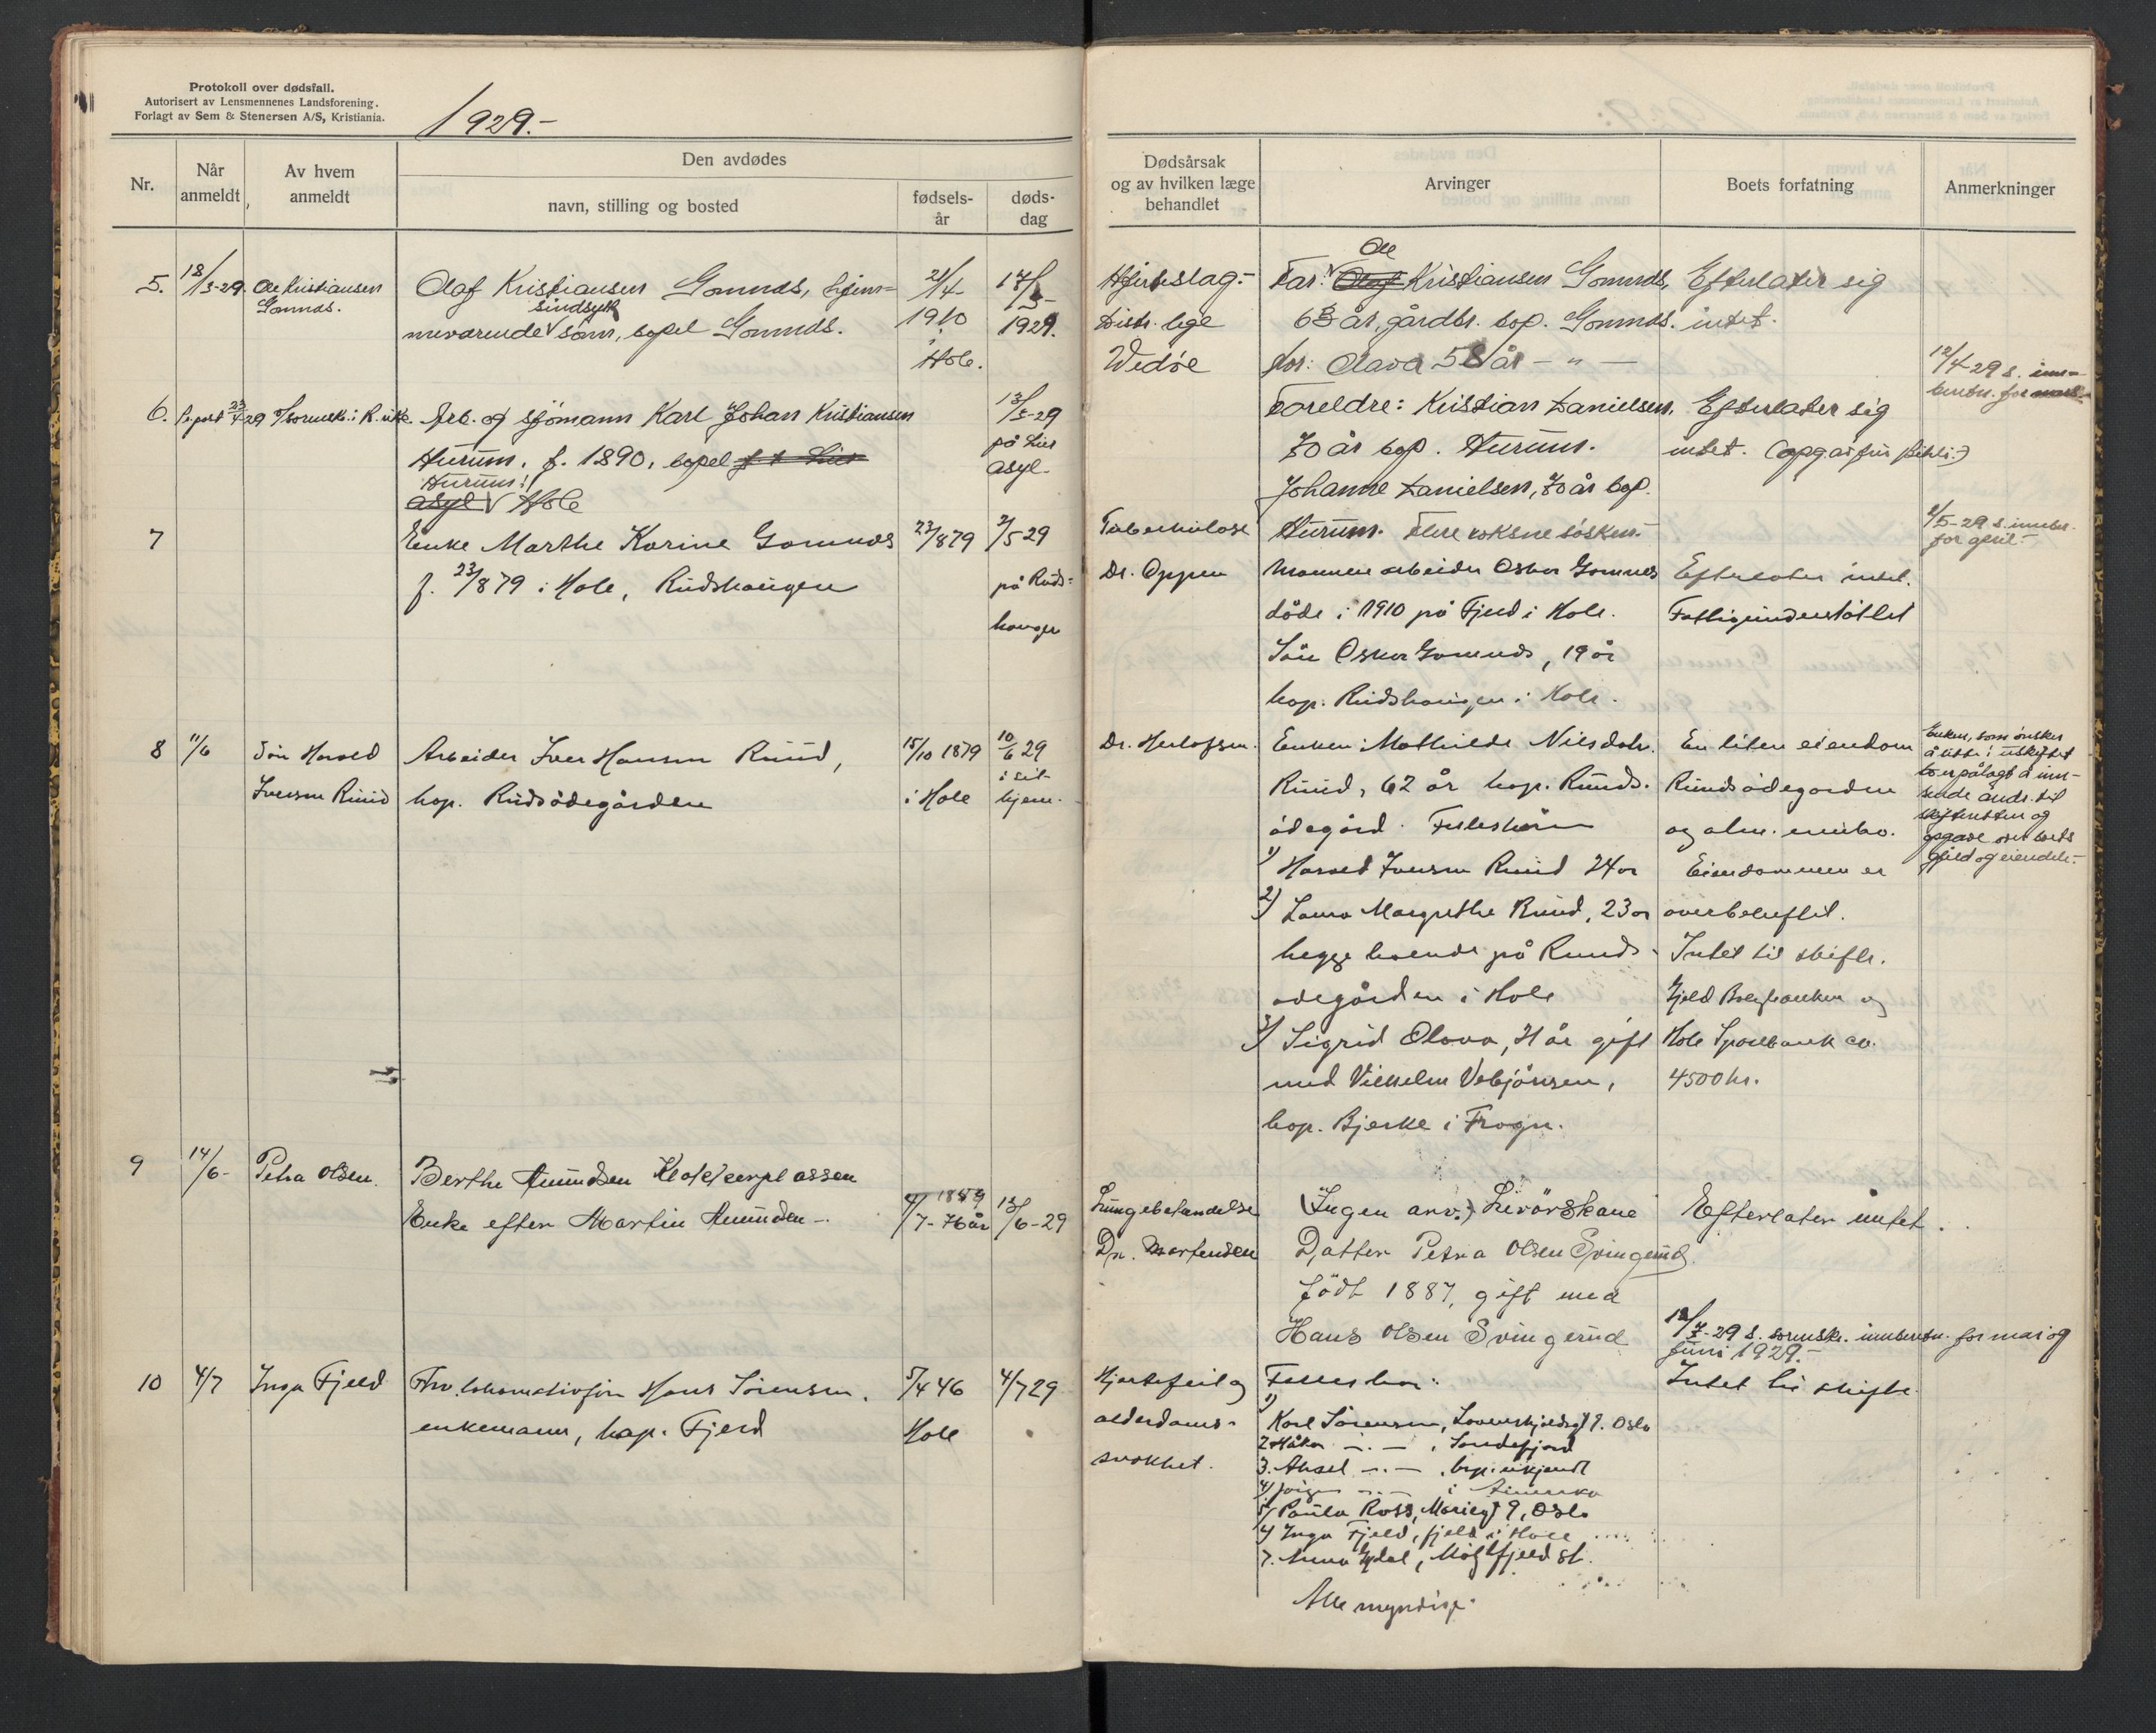 Protokoll over dødsfall.
Autorisert av Lensmennenes Landsforening.
Forlagt av Sem & Stenersen A/S, Kristiania.
1929.-
Nr.
Når anmeldt
Av hvem anmeldt
Den avdødes
navn, stilling og bosted
fødsels-år
døds-dag
Dødsårsak og av hvilken læge behandlet
Arvinger
Boets forfatning
Anmerkninger
5. 18/3-29. Ole Kristiansen
Gomnæs.
Olaf Kristiansen Gomnæs, hjem-
sindsyk
meværende V sønn, bopel Gomnæs.
21/4-
1910
i Hole.
17/3-
1929.
Hjerteslag.-
Distr. lege
Wedøe
Ole
Far: V Olaf Kristiansen Gomnæs,
63 år, gårdbr. bop. Gomnæs.
Mor: Olava 58 år - " -
Efterlater sig
intet.
12/4-29 s. inn-
beretn. for mars.
6. 23/4 29
Arb. og sjömann Karl Johan Kristiansen
Hurum, f. 1890, bopel
Hurum!
asyl V Hole
13/3-29
på Lier
asyl.
Foreldre: Kristian Danielsen,
70 år bop. Hurum.
Johanne Danielsen, 70 år bop.
Hurum. Flere voksne søsken.-
Efterlater sig
intet.
2/5-29 s. innber.
for april.-
7
Enke Marthe Karine Gomnæs
f. 23/8 79 i Hole, Rudshaugen
23/8 79
2/5 29
på Ruds-
haugen
Tuberkulose
Dr. Oppen
Mannen arbeider Oskar Gomnes
döde i 1910 på Fjeld i Hole.
Sön Oskar Gomnæs, 19 år
bop. Rudshaugen i Hole.
Efterlater intet.
Fattigunderstöttet
8 11/6 Sön Harald
Iversen Ruud
Arbeider Iver Hansen Ruud,
bop. Rudsödegården
15/10 1879
i Hole
10/6 29
i sit
hjem.
Dr. Herlofsen.
Enken: Mathilde Nilsdatr.
Ruud, 62 år bop. Ruuds-
ödegård. Fellesbarn
1) Harald Iversen Ruud 24 år
2) Laura Margrethe Ruud, 23 år
begge boende på Ruuds-
ödegården i Hole
3) Sigrid Olava, 21 år gift
med Vilhelm Vebjörnsen,
bop. Bjerke i Frogn.
En liten eiendom
Ruudsödegården
og alm. innbo.
Eiendommen er
overbeheftet.
Intet til skifte.
Gjeld Boligbanken og
Hole Sparebank ca.
4500 kr.
Enken, som önsker
å sitte i uskiftet
bo er pålagt å inn-
sende andr. til
skifteretten og
opgave over boets
gjeld og eiendele.-
9 14/6- Petra Olsen.
Berthe Amundsen Klokkerplassen
Enke efter Martin Amundsen.-
4/7- 76 år
12/6-29
Lungebetendelse
Dr. Mortensen
(Ingen arv.) Livörskane
Datter Petra Olsen Svingerud.
født 1887, gift med
Hans Olsen Svingerud
Efterlater intet.
12/7-29 s. sorenskr. innberetn. for mai og
juni 1929.-
10 4/7 Inga Fjeld
Fhv. lokomotivför. Hans Sörensen.
enkemann, bop. Fjeld
5/4 46
Hole
4/7 29
Hjertefeil og
alderdoms-
svakhet.
Fellesbarn:
1) Karl Sörensen, Oslo
2. Håkon -.- , Sandefjord
3. Aksel -.- , bop. ukjendt
i Amerika
5) Paula Ross, Mariegt 9, Oslo
Inga Fjeld, fjeld i Hole
7. Anna
Alle myndige.
Intet til skifte.